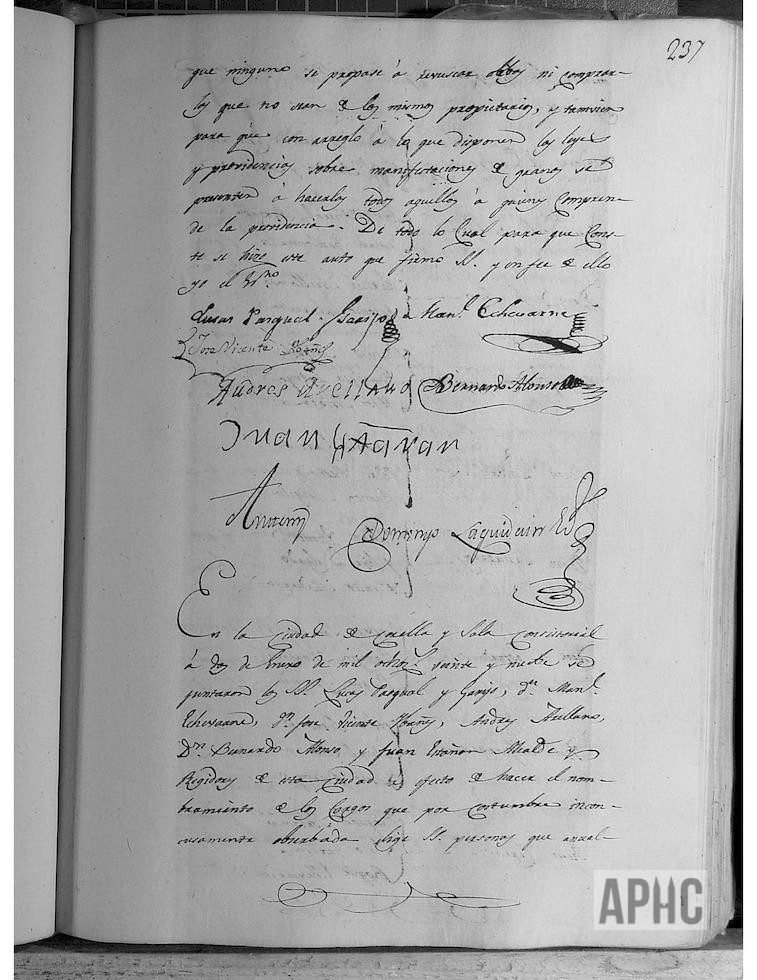 237
que ninguno se propase á rebuscar olibas ni comprar-
las que no sean de los mismos propietarios, y tamvien
para que con arreglo á lo que disponen las leyes
y providencias sobre manifestaciones de granos se
presenten á hacerlas todos aquellos á quienes compren-
de la providencia. De todo lo Cual para que Cons-
te se hizo este auto que firmó SS. y en fee de ello
yo el Essno
Lucas Pasqual y Garijo Manl. Echevarne
Jose Vicente Ybañes
Andres Avellano Bernardo Alonso
Juan Estañan
Antemi Domingo Laquidain Es
En la Ciudad de Corella y Sala Consistorial
á dos de Enero de mil ochos. veinte y nuebe se
juntaron los SS. Lucas Pasqual y Garijo, Dn. Manl.
Echevarne, Dn. Jose Vicente Ybañes, Andres Avellano,
Dn. Bernardo Alonso, y Juan Estañan Alcalde y
Regidores de esta Ciudad a efecto de hacer el nom-
bramiento de los Cargos que por costumbre incon-
cusamente obserbada elige SS. personas que anual-
APHC